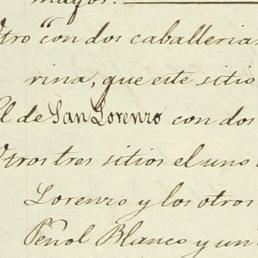 mayor.
Otro con dos caballerias
rina, que este sitio
El de San Lorenzo con dos
Otros tres sitios el uno
Lorenzo y los otros
Peñol Blanco y un